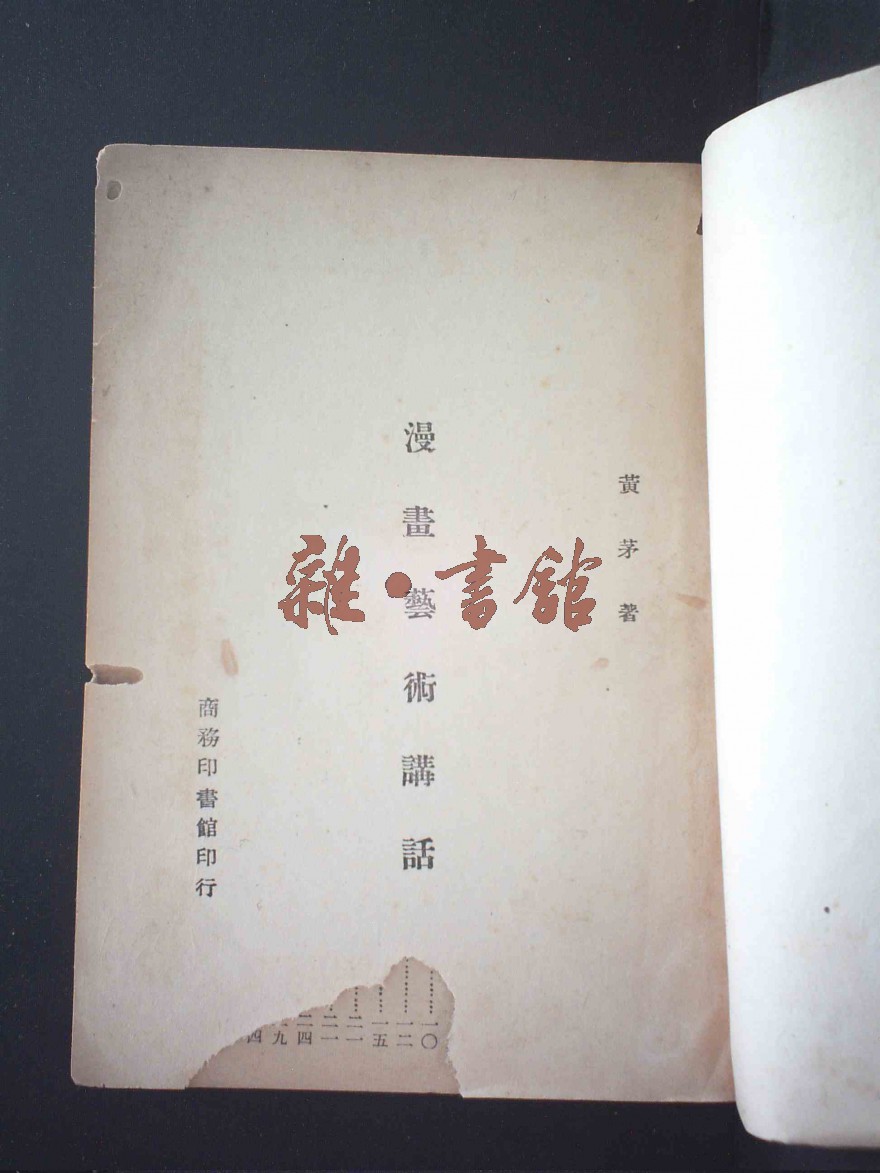 黃茅著
漫畫藝術講話
商務印書館印行
雜·書館
一〇
一二
一五
二一
二一
二四
九
四